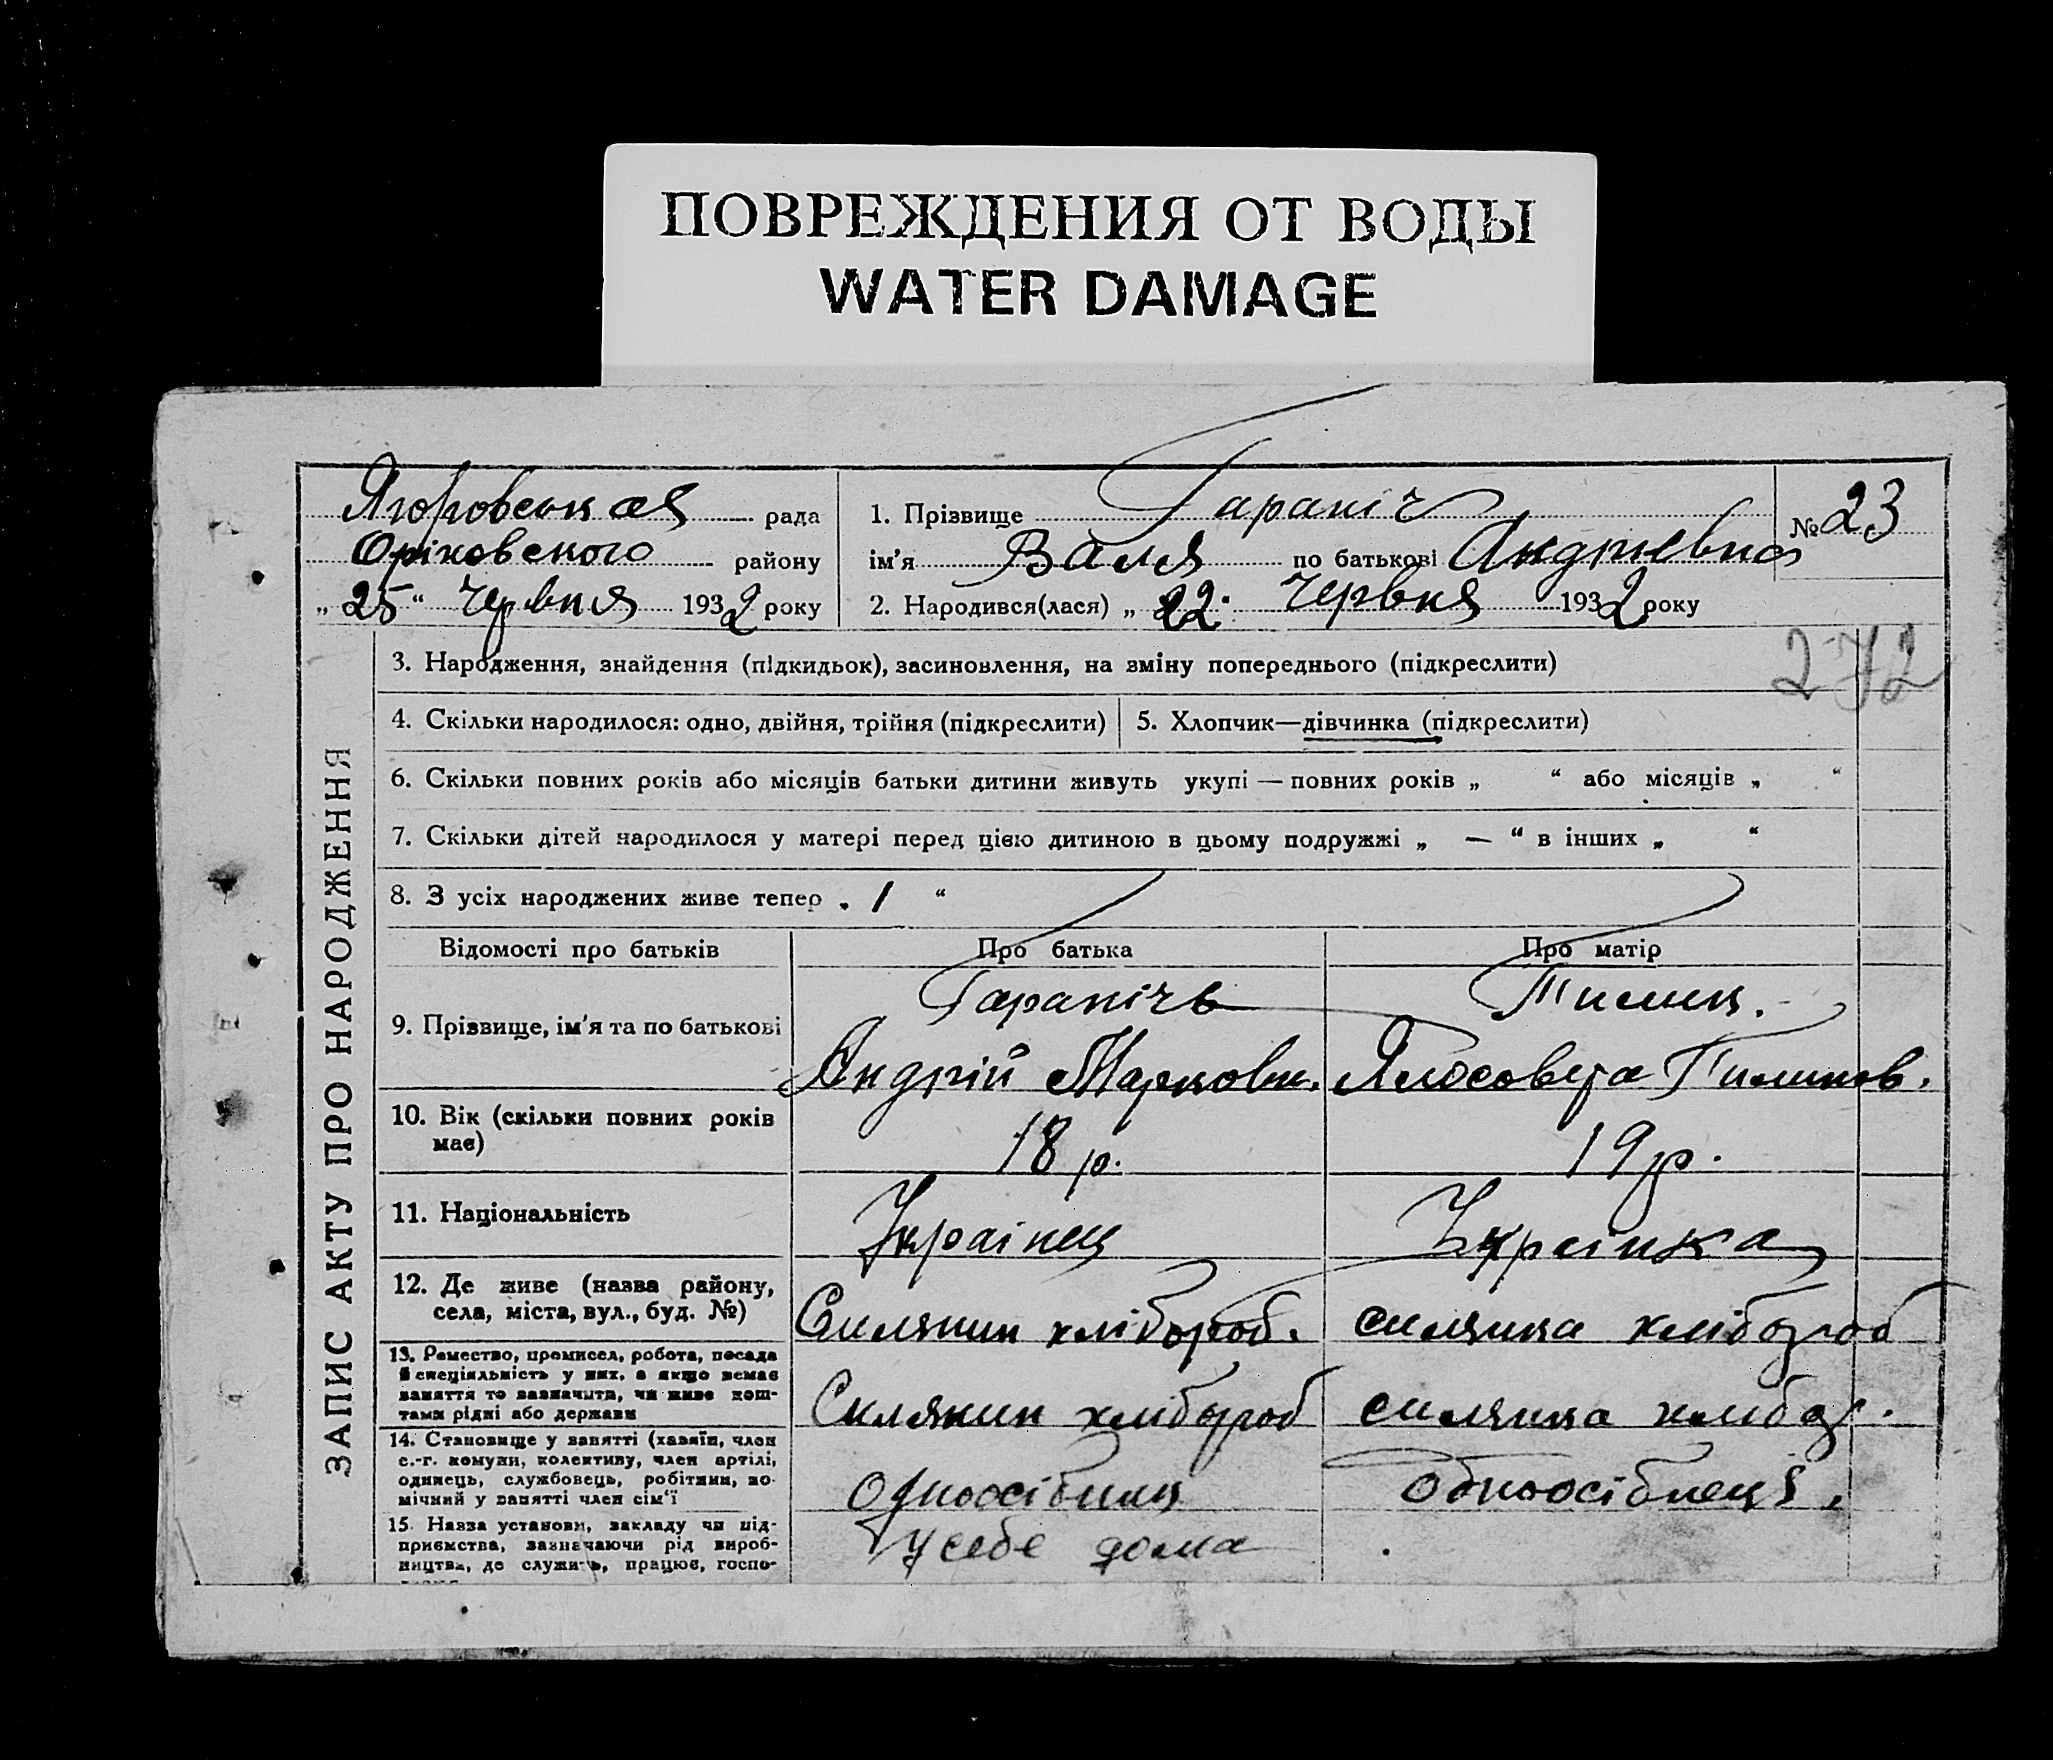 ПОВРЕЖДЕНИЯ ОТ ВОДЫ
WATER DAMAGE
ЗАПИС АКТУ ПРО НАРОДЖЕННЯ
рада
Оріховського району
„ 25 “ Червня 1932 року
1. Прізвище Гарапіч
№ 23
ім'я Валя по батькові Андріевна
2. Народився(лася) „ 22. Червня 1932 року
272
3. Народження, знайдення (підкидьок), засиновлення, на зміну попереднього (підкреслити)
4. Скільки народилося: одно, двійня, трійня (підкреслити)
5. Хлопчик—дівчинка (підкреслити)
6. Скільки повних років або місяців батьки дитини живуть укупі — повних років „ “ або місяців „ “
7. Скільки дітей народилося у матері перед цією дитиною в цьому подружжі „ — “ в інших „ “
8. З усіх народжених живе тепер „ 1 “
Відомості про батьків
Про батька
Про матір
9. Прізвище, ім'я та по батькові
Гарапічь
Андрій Марковн.
10. Вік (скільки повних років
має)
18 р.
19 р.
11. Національність
Українец
Українка
12. Де живе (назва району,
села, міста, вул., буд. №)
Силянин хлібороб.
силянка хлібороб
13. Ремество, промисел, робота, посада
й спеціяльність у них, а якщо немає
заняття то зазначити, чи живе кош-
тами рідні або держави
Силянин хлібороб
силянка хлібор.
14. Становище у занятті (хазяїн, член
с.-г. комуни, колективу, член артілі,
одинець, службовець, робітник, по-
мічний у занятті член сім'ї
одноосібниц
15. Назва установи, закладу чи під-
приємства, зазначаючи рід вироб-
ництва, де служить, працює, госпо-
у себе дома